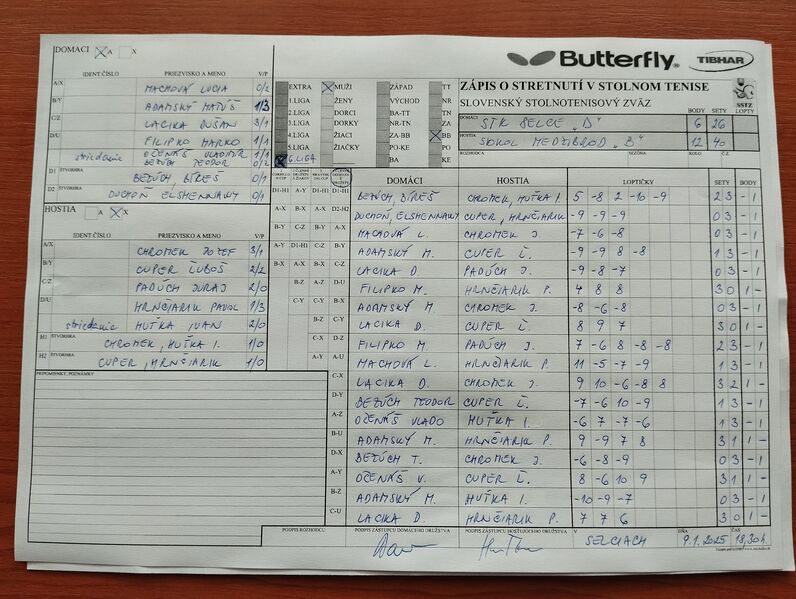 DOMACI X A X
IDENT.ČÍSLO PRIEZVISKO A MENO V/P
A/X MACHOVÁ LUCIA 0/2
B/Y ADAMSKÝ MATÚŠ 1/3
C/Z LACIKA DUŠAN 3/1
D/U FILIPKO MARKO 1/1
striedanie OČENÁŠ VLADIMÍR 1/1
BEZÚCH TEODOR 0/2
D1 ŠTVORHRA BEZÚCH, BÍREŠ 0/1
D2 ŠTVORHRA DUCHOŇ ELSHENNAWY 0/1
HOSTIA A X X
IDENT.ČÍSLO PRIEZVISKO A MENO V/P
A/X CHROMEK JOZEF 3/1
B/Y CUPER ĽUBOŠ 2/2
C/Z PADÚCH JURAJ 2/0
D/U HRNČIARIK PAVOL 1/3
striedanie HUŤKA IVAN 2/0
H1 ŠTVORHRA CHROMEK, HUŤKA I. 1/0
H2 ŠTVORHRA CUPER, HRNČIARIK 1/0
PRIPOMIENKY, POZNÁMKY
Butterfly TIBHAR
EXTRA X MUŽI ZÁPAD TT
1.LIGA ŽENY VÝCHOD NR
2.LIGA DORCI BA-TT TN
3.LIGA DORKY NR-TN ZA
4.LIGA ŽIACI ZA-BB X BB
5.LIGA ŽIAČKY PO-KE PO
X 6.LIGA BA KE
ZÁPIS O STRETNUTÍ V STOLNOM TENISE
SLOVENSKÝ STOLNOTENISOVÝ ZVÄZ
SSTZ
BODY SETY LOPTY
DOMÁCI STK SELCE "D" 6 26
HOSTIA SOKOL MEDZIBROD "B" 12 40
ROZHODCA SEZÓNA KOLO Č.
DOMÁCI HOSTIA LOPTIČKY SETY BODY
D1-H1 A-Y D1-H1 D1-H1 BEZÚCH, BÍREŠ CHROMEK, HUŤKA I. 5 -8 2 -10 -9 2 3 - 1
A-X B-X A-X D2-H2 DUCHOŇ, ELSHENNAWY CUPER, HRNČIARIK -9 -9 -9 0 3 - 1
B-Y C-Z B-Y A-X MACHOVÁ L. CHROMEK J. -7 -6 -8 0 3 - 1
A-Y D1-H1 C-Z B-Y ADAMSKÝ M. CUPER Ľ. -9 -9 8 -8 1 3 - 1
B-X A-X B-X C-Z LACIKA D. PADÚCH J. -9 -8 -7 0 3 - 1
C-Y A-Z D-U FILIPKO M. HRNČIARIK P. 4 8 8 3 0 1 -
C-Y B-X ADAMSKÝ M. CHROMEK J. -8 -6 -8 0 3 - 1
B-Z C-Y LACIKA D. CUPER Ľ. 8 9 7 3 0 1 -
C-X D-Z FILIPKO M. PADÚCH J. 7 -6 8 -8 -8 2 3 - 1
A-Y A-U MACHOVÁ L. HRNČIARIK P. 11 -5 -7 -9 1 3 - 1
C-X LACIKA D. CHROMEK J. 9 10 -6 -8 8 3 2 1 -
D-Y BEZÚCH TEODOR CUPER Ľ. -7 -6 10 -9 1 3 - 1
A-Z OČENÁŠ VLADO HUŤKA I. -6 7 -7 -6 1 3 - 1
B-U ADAMSKÝ M. HRNČIARIK P. 9 -9 7 8 3 1 1 -
D-X BEZÚCH T. CHROMEK J. -6 -8 -9 0 3 - 1
A-Y OČENÁŠ V. CUPER Ľ. 8 -6 10 9 3 1 1 -
B-Z ADAMSKÝ M. HUŤKA I. -10 -9 -7 0 3 - 1
C-U LACIKA D. HRNČIARIK P. 7 7 6 3 0 1 -
PODPIS ROZHODCU PODPIS ZÁSTUPCU DOMÁCEHO DRUŽSTVA PODPIS ZÁSTUPCU HOSŤUJÚCEHO DRUŽSTVA V SELCIACH DŇA 9.1.2025 ČAS 18,30 h.